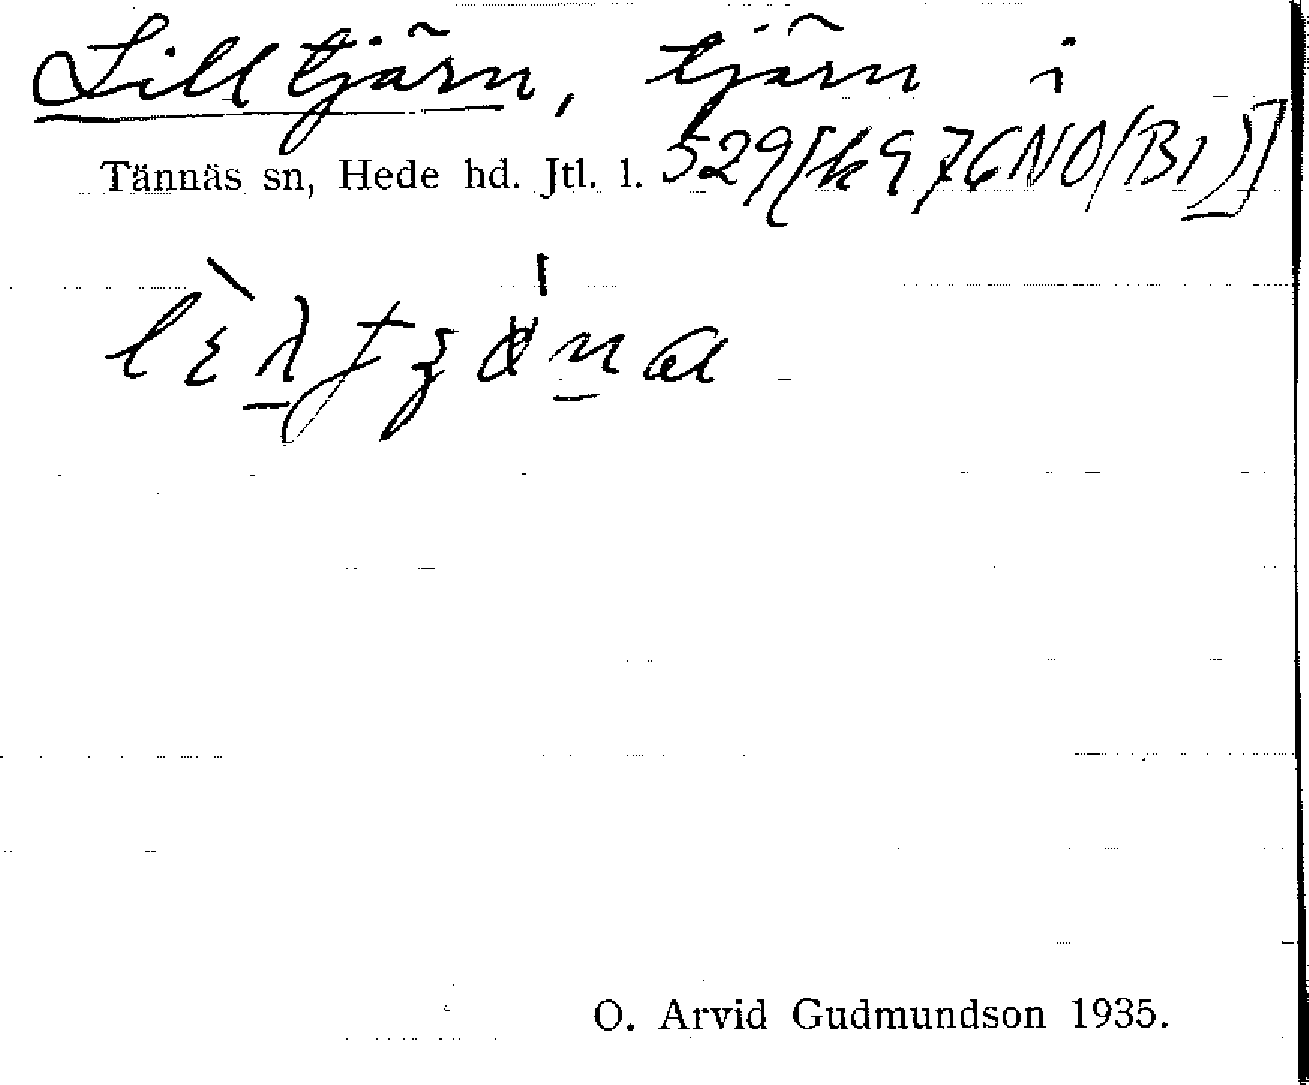 Lilltjärn, tjärn i
Tännäs sn, Hede hd. Jtl. l. 529[k976NO(B1)]
O. Arvid Gudmundson 1935.